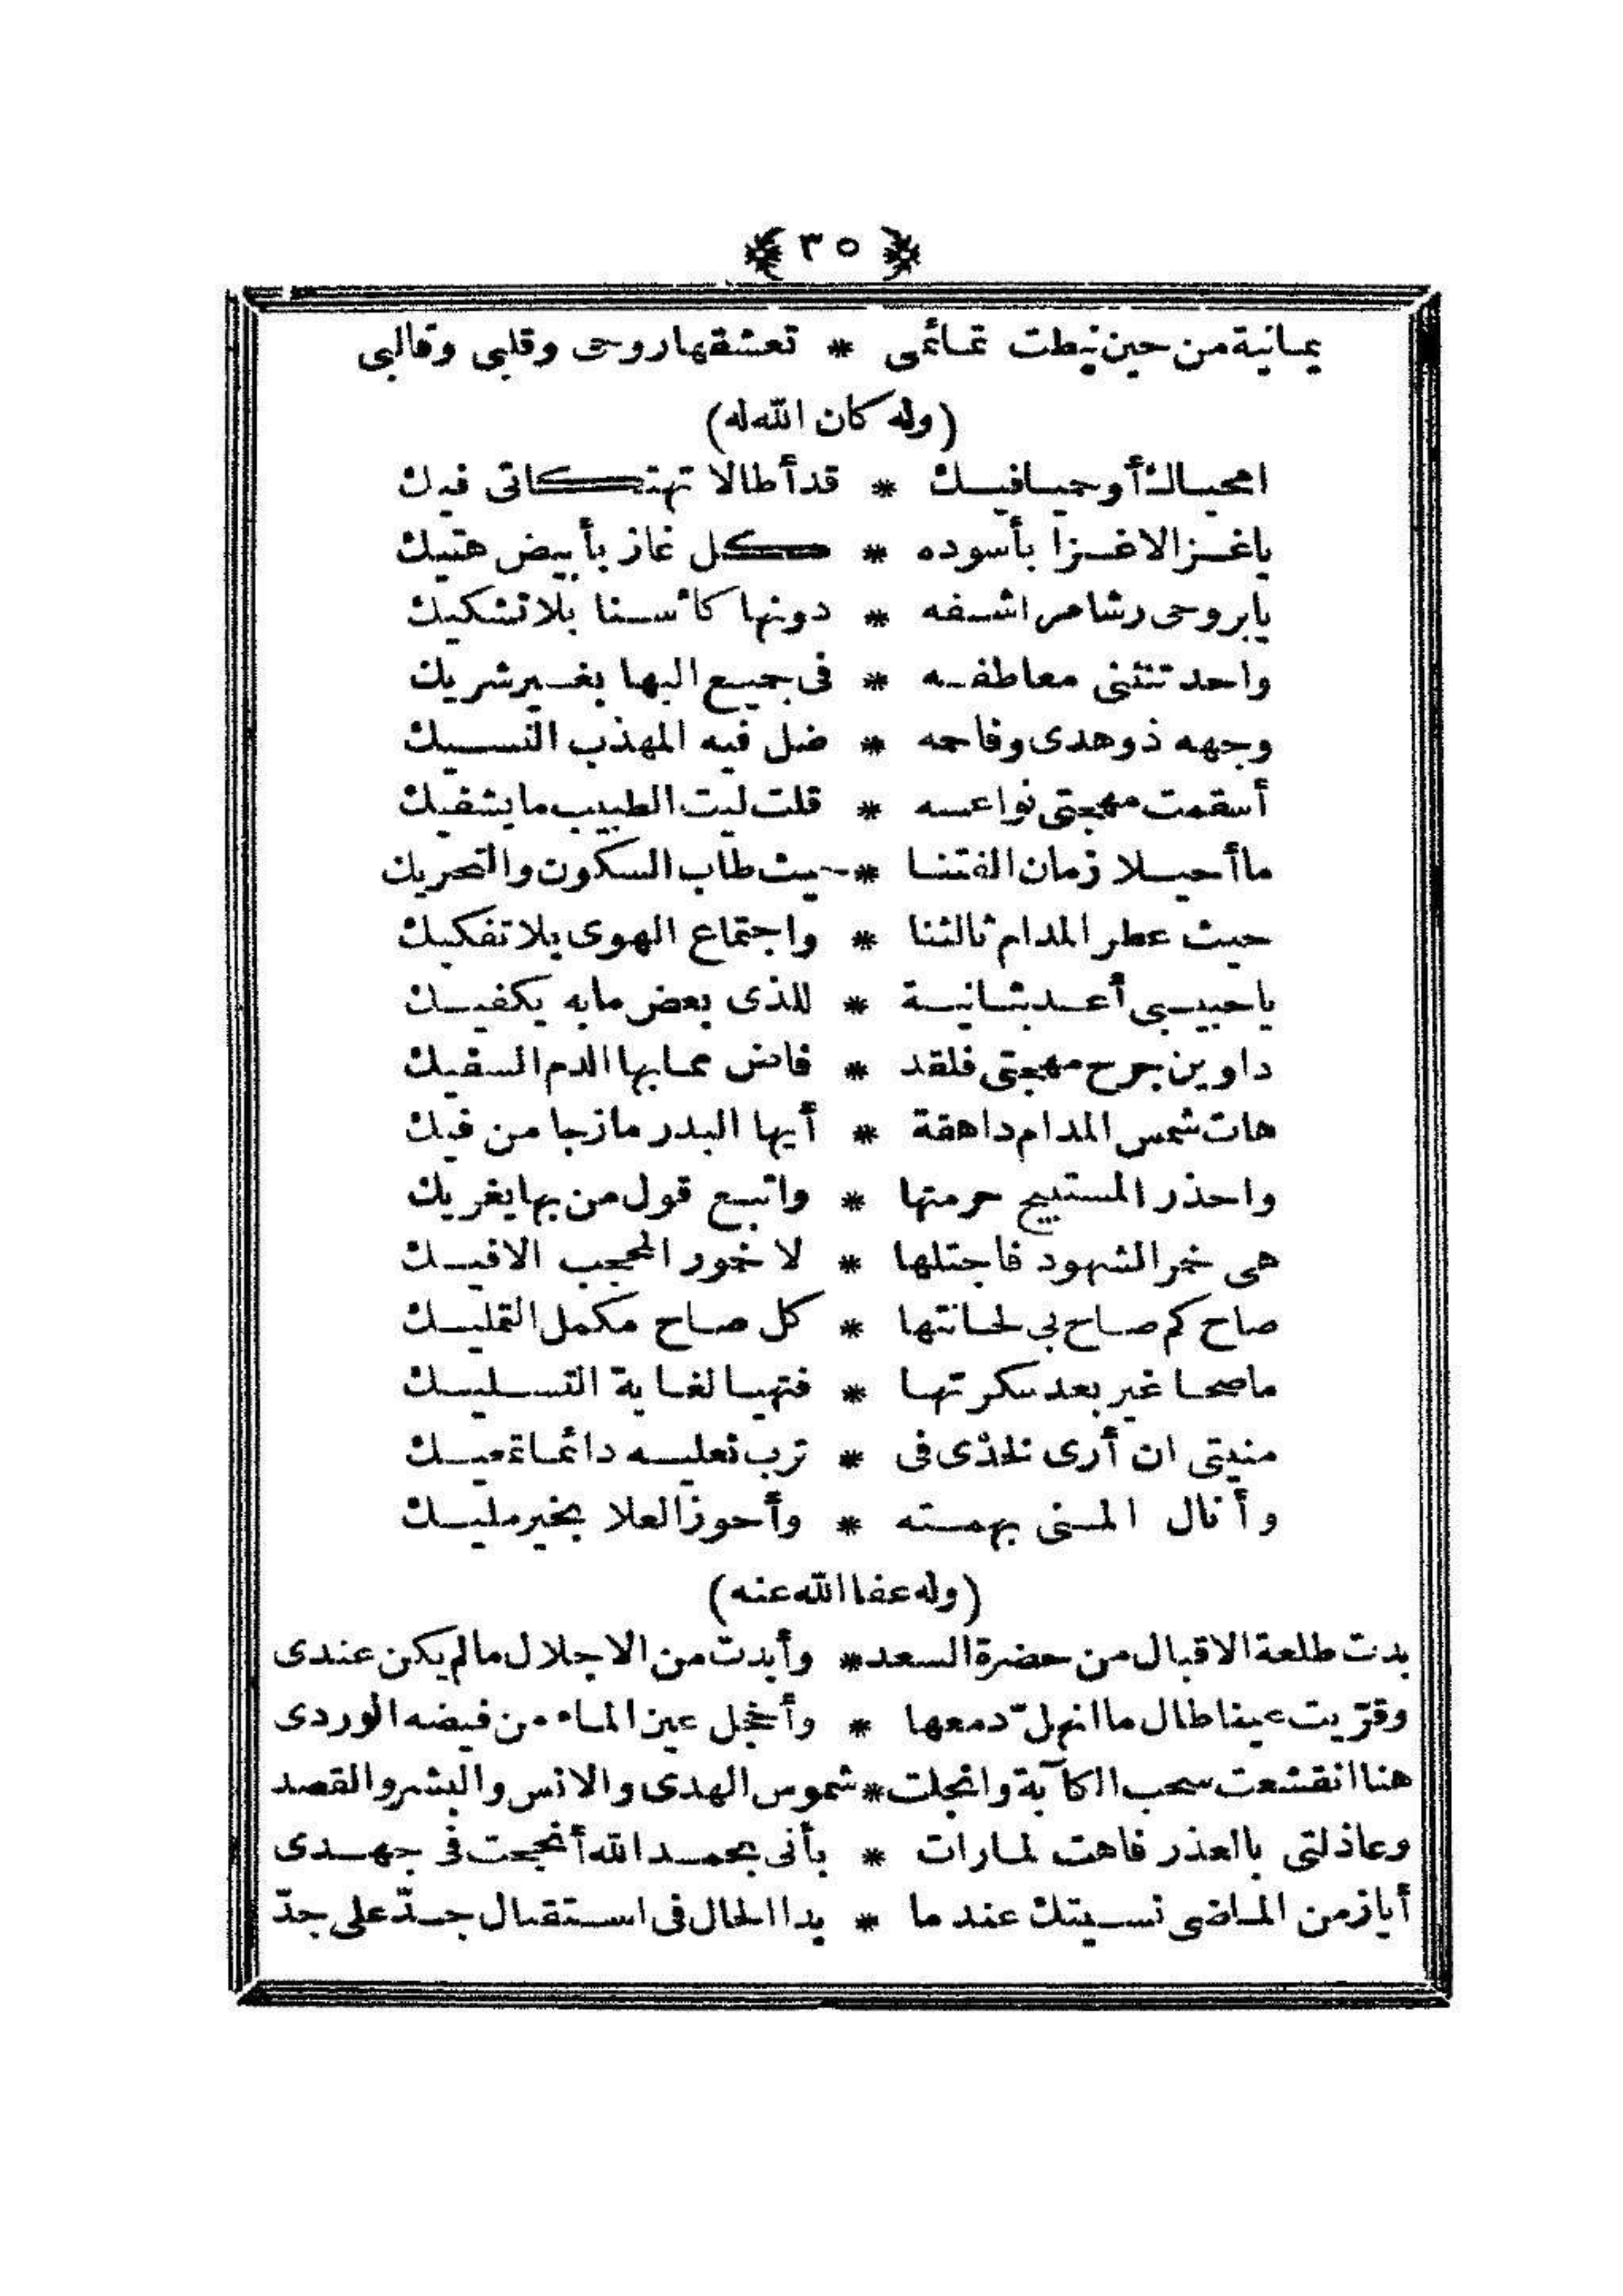 ﴿ ٣٥ ﴾
يمانية من حين نيطت تمائمى * تعشقها روحى وقلبى وقالبى
(وله كان الله له)
المحياك أو حيا فيك * قد أطالا تهتكاتى فيك
ياغزالا غزا بأسوده * كل غاز بأبيض هتيك
يابروحى رشا مراشفه * دونها كأسنا بلا تشكيك
واحد تنثنى معاطفه * فى جميع البها بغير شريك
وجهه ذو هدى وفاحمه * ضل فيه المهذب النسيك
أسقمت مهجتى نواعسه * قلت ليت الطبيب ما يشفيك
ما أحيلا زمان الفتنا * حيث طاب السكون والتحريك
حيث عطر المدام ثالثنا * واجتماع الهوى بلا تفكيك
ياحبيبى أعد بثانية * للذى بعض مابه يكفيك
داوين جرح مهجتى فلقد * فاض مما بها الدم السفيك
هات شمس المدام داهقة * أيها البدر مازجا من فيك
واحذر المستبيح حرمتها * واتبع قول من بها يغريك
هى خمر الشهود فاجتلها * لا خمور المحجب الافيك
صاح كم صاح بى لحانتها * كل صاح مكمل التمليك
ماصحا غير بعد سكرتها * فتهيا لغاية التسليك
منيتى ان أرى لخدّى فى * ترب نعليه دائما تمعيك
وأنال المنى بهمته * وأحوز العلا بخير مليك
(وله عفا الله عنه)
بدت طلعة الاقبال من حضرة السعد * وأبدت من الاجلال مالم يكن عندى
وقرّيت عينا طال ما انهلّ دمعها * وأخجل عين الماء من فيضه الوردى
هنا انقشعت سحب الكآبة وانجلت * شموس الهدى والانس والبشر والقصد
وعاذلتى بالعذر فاهت لما رات * بأنى بحمد الله أنجحت فى جهدى
أيا زمن الماضى نسيتك عند ما * بدا الحال فى استقبال جدّ على جدّ